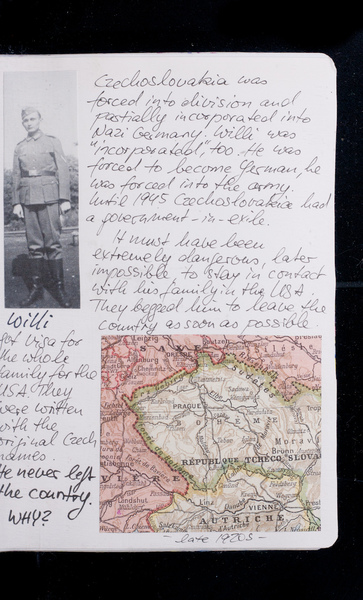 Czechoslovakia was
forced into division and
partially incorporated into
Nazi Germany. Willi was
"incorporated", too. He was
forced to become German, he
was forced into the army.
Until 1945 Czechoslovakia had
a government-in-exile.
It must have been
extremely dangerous, later
impossible, to stay in contact
with his family in the USA.
They begged him to leave the
country as soon as possible.
Willi
got visa for
the whole
family for the
USA. They
were written
with the
original Czech
names.
He never left
the country.
WHY?
Leipzig
PRAGUE
BOHÊME
Moravie
Brünn
RÉPUBLIQUE TCHÉCO-SLOVA
VIÈRE
Landshut
Linz
VIENNE
AUTRICHE
- late 1920s -